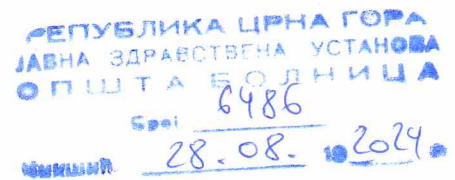 РЕПУБЛИКА ЦРНА ГОРА
ЈАВНА ЗДРАВСТВЕНА УСТАНОВА
ОПШТА БОЛНИЦА
Број 6486
Никшић 28.08. 2024.